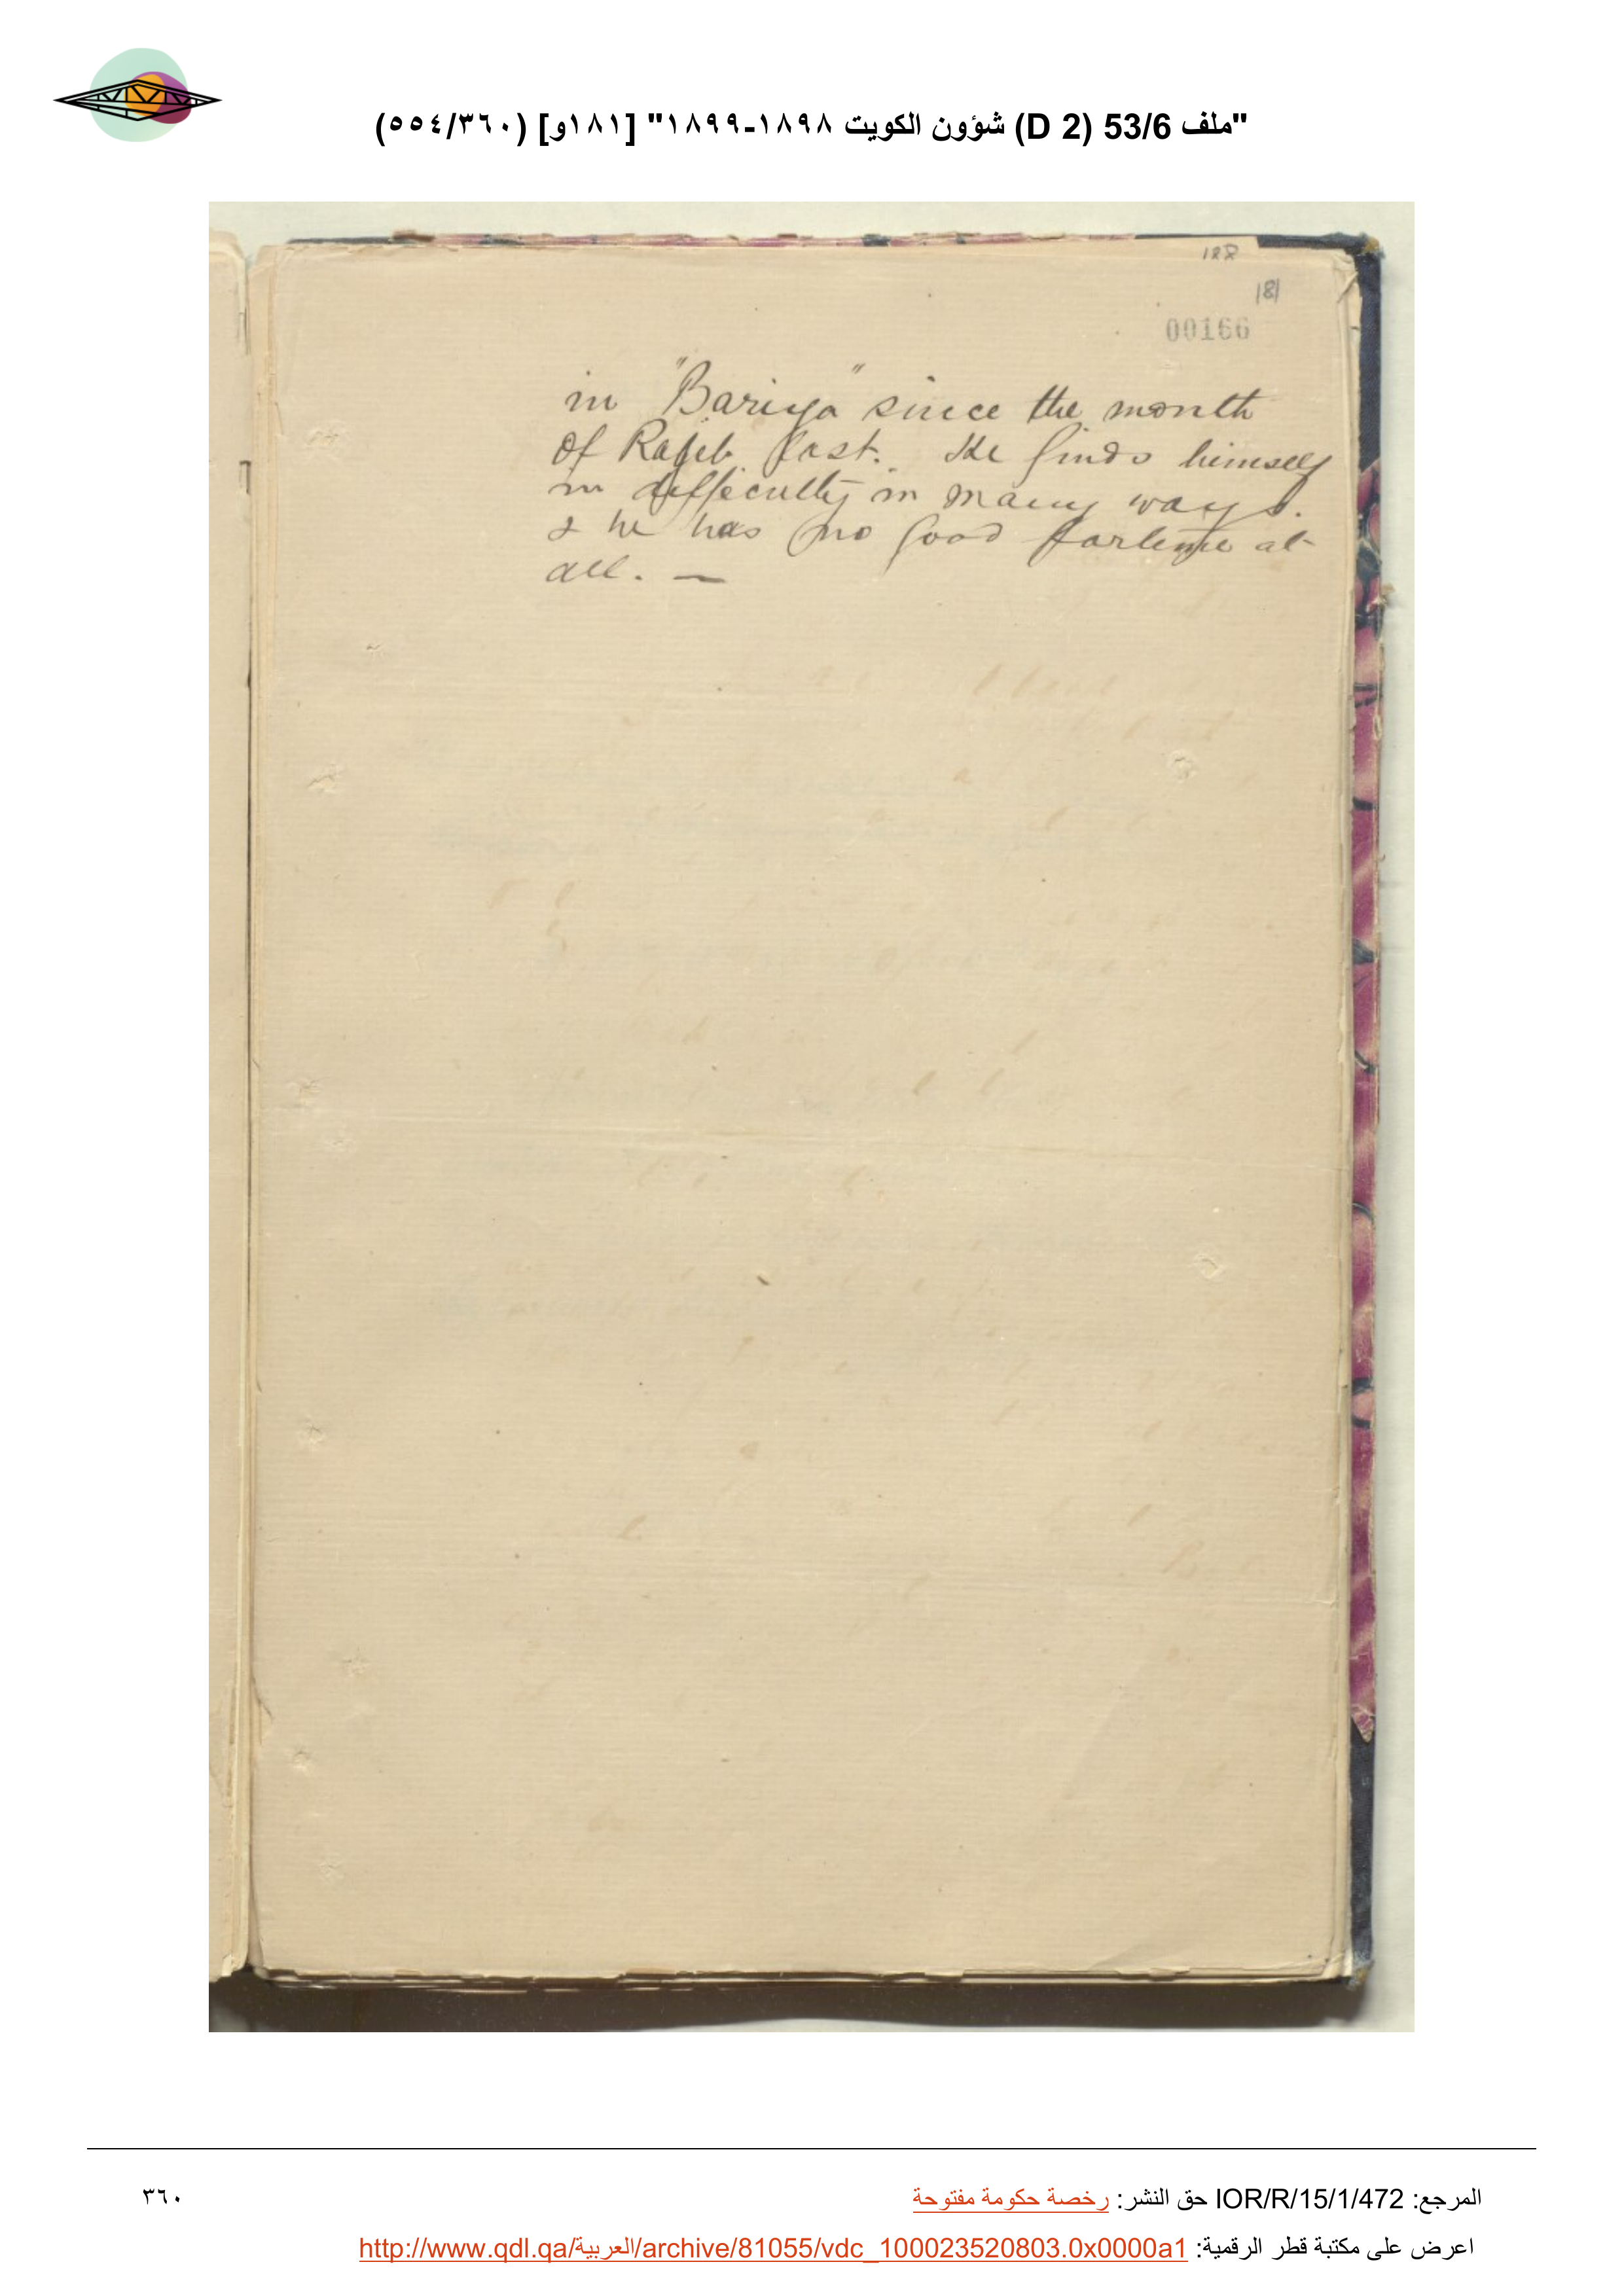 "ملف 53/6 (D 2) شؤون الكويت ١٨٩٨-١٨٩٩" [١٨١و] (٥٥٤/٣٦٠)
188
181
00166
in "Bariya" since the month
of Rajeb last. He finds himself
in difficulty in many ways.
& he has no good fortune at
all. —
المرجع: IOR/R/15/1/472 حق النشر: رخصة حكومة مفتوحة
٣٦٠
اعرض على مكتبة قطر الرقمية: http://www.qdl.qa/العربية/archive/81055/vdc_100023520803.0x0000a1